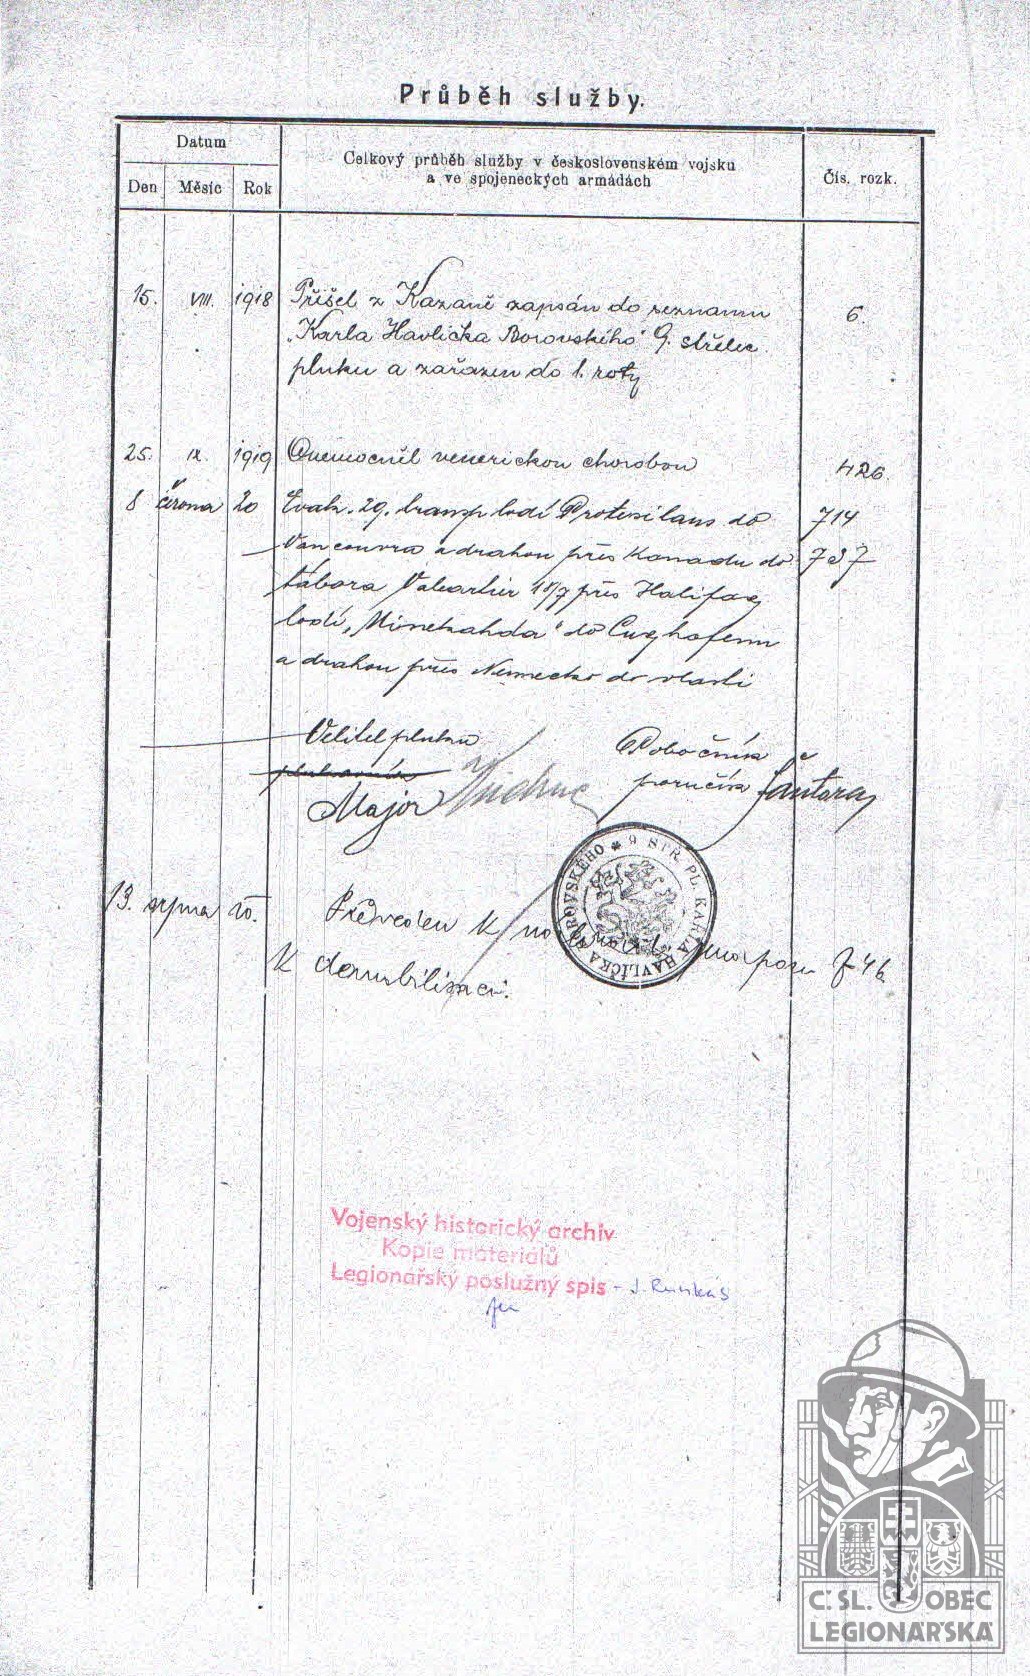 Průběh služby.
Datum
Den Měsíc Rok
Celkový průběh služby v československém vojsku
a ve spojeneckých armádách
Čís. rozk.
15. VIII. 1918 Přišel z Kazaně zapsán do seznamu 6.
„Karla Havlíčka Borovského" 9. střelec.
pluku a zařazen do 1. roty
25. IX. 1919 Onemocněl venerickou chorobou 426.
8 června 20 Evak. 29. transp lodí Protesilaus do 714
Vancouvra a drahou přes Kanadu do 737
tábora Valcartier 18/7 přes Halifax
lodí „Minekahda" do Cuxhafenu
a drahou přes Německo do vlasti
Velitel pluku Pobočník
Major poručík
9 STŘ. PL. KARLA HAVLÍČKA BOROVSKÉHO
13. srpna 20. Předveden k 746
k demobilisaci.
Vojenský historický archiv
Kopie materiálů
Legionářský poslužný spis - J.
Č. SL. OBEC
LEGIONÁŘSKÁ